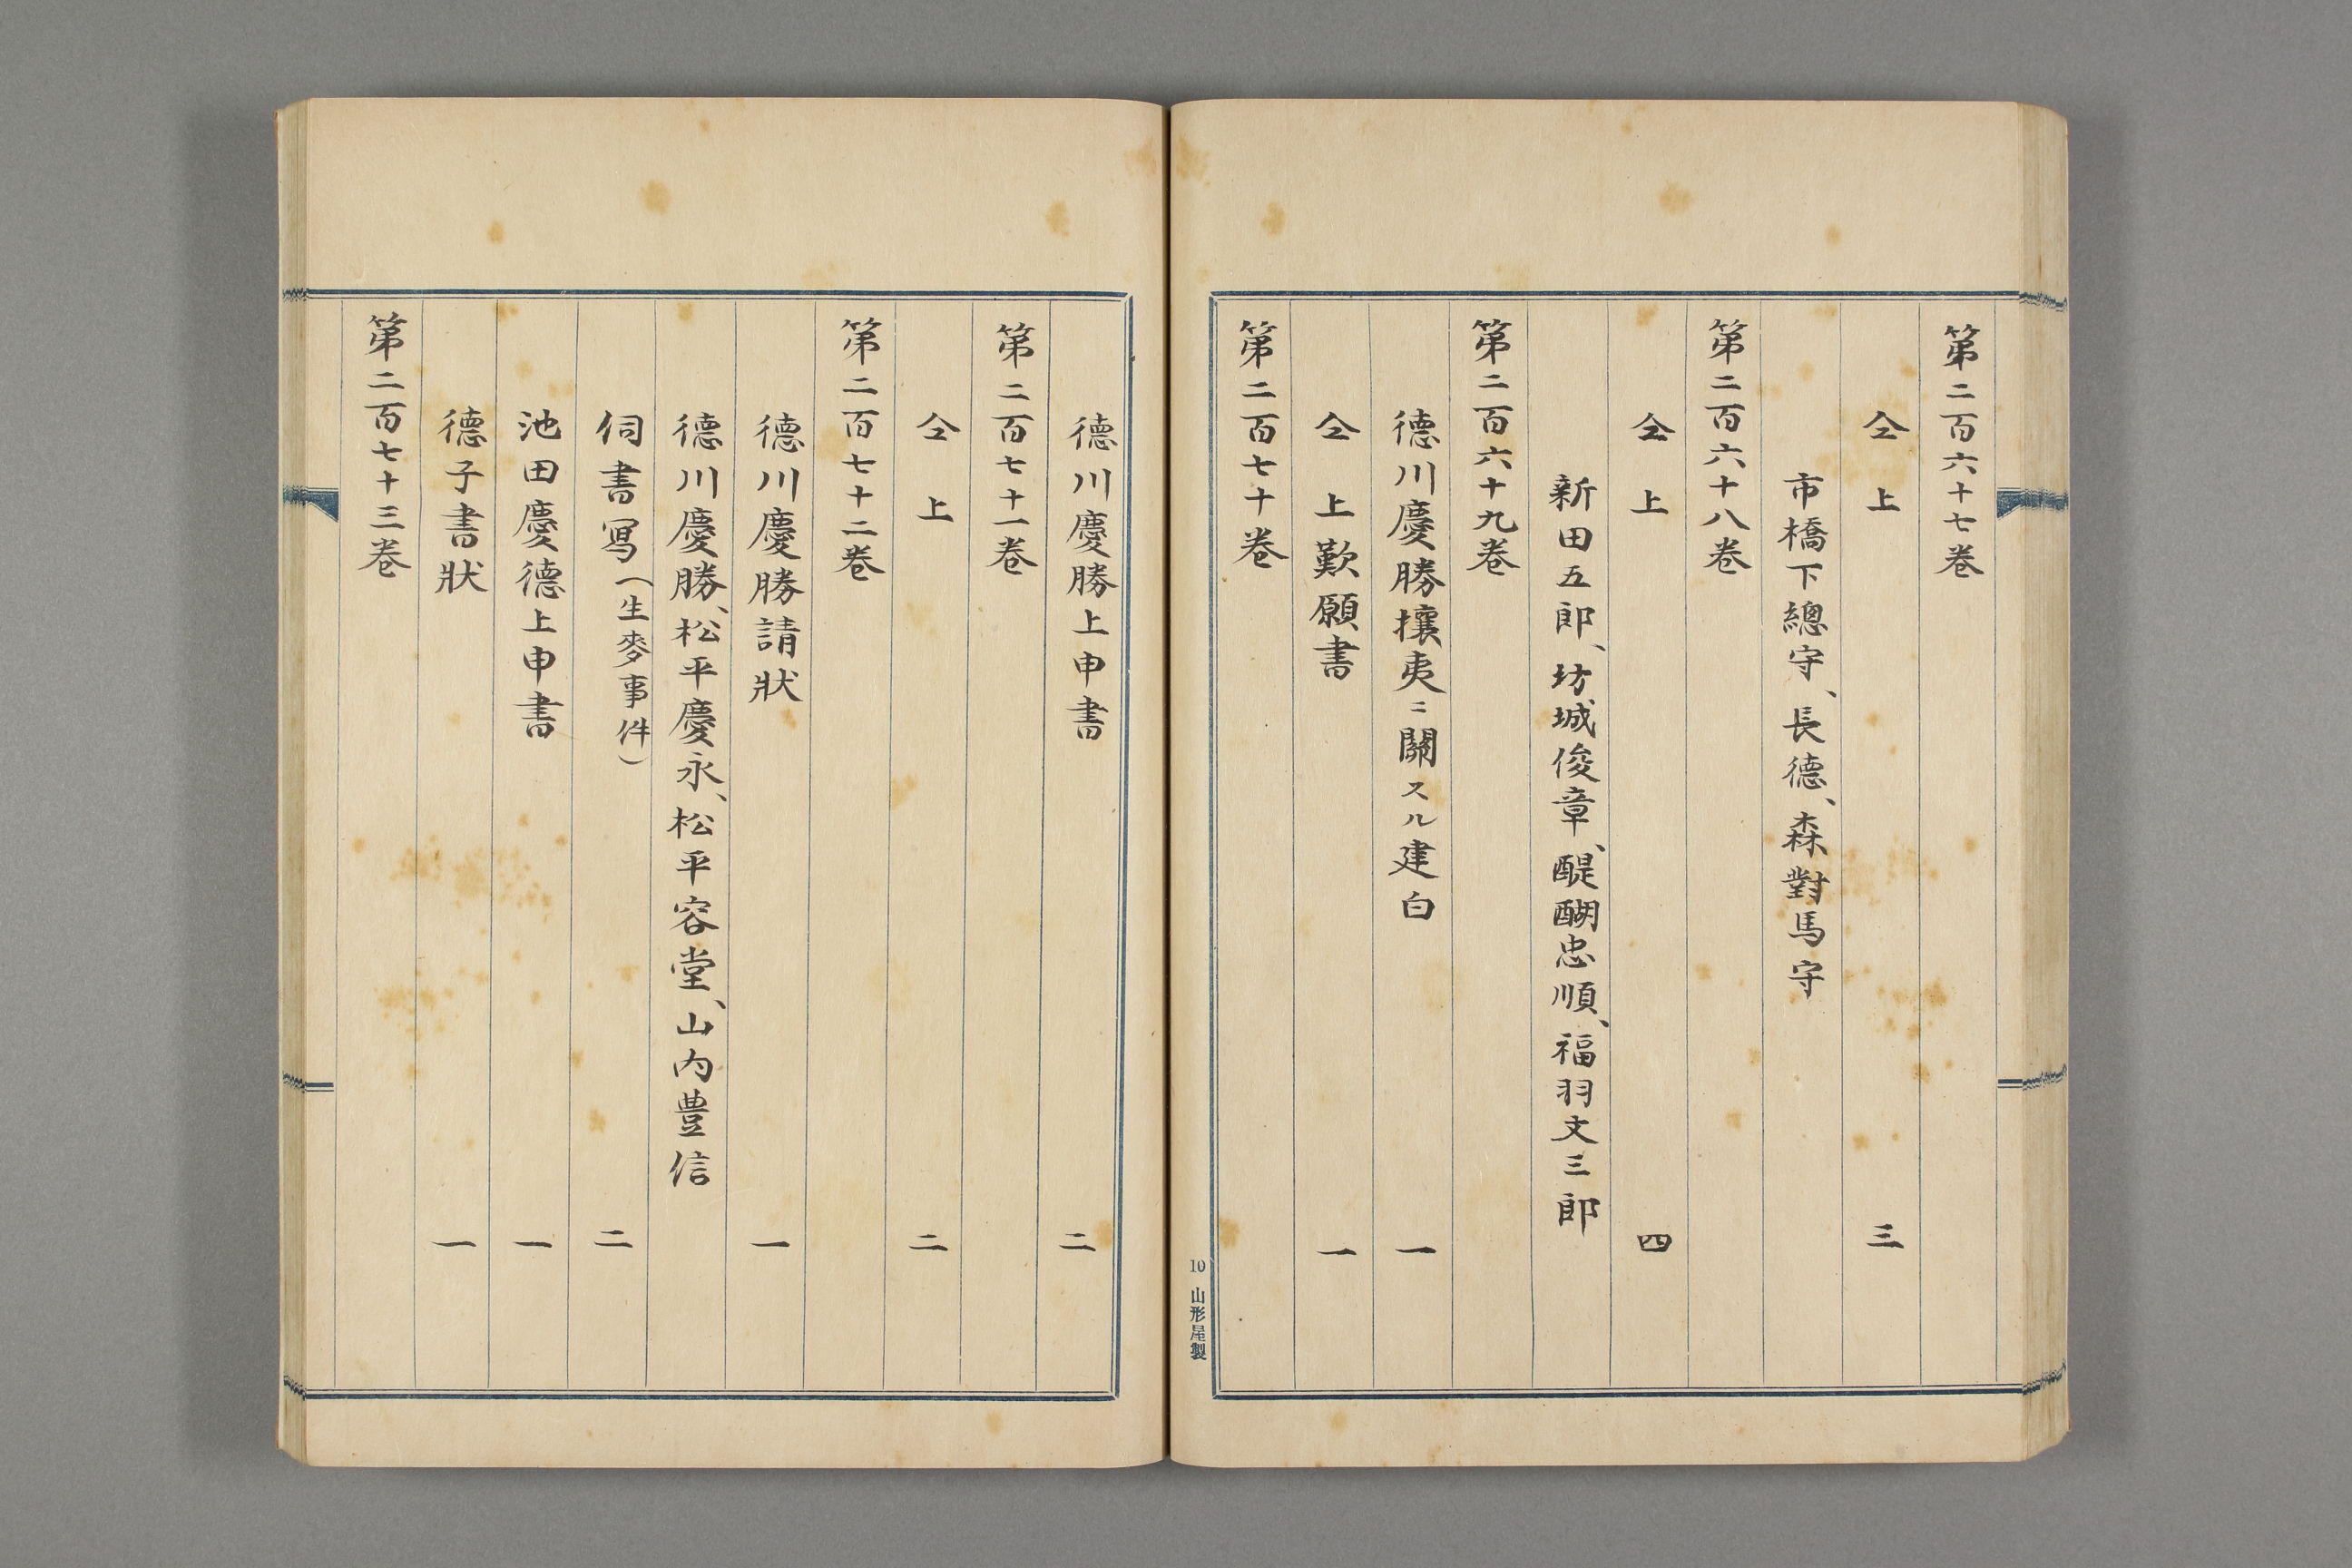 第二百六十七巻
仝上 三
市橋下總守、長德、森對馬守
第二百六十八巻
仝上 四
新田五郎、坊城俊章、醍醐忠順、福羽文三郎
第二百六十九巻
德川慶勝攘夷ニ關スル建白 一
仝上歎願書 一
第二百七十巻
10 山形屋製
德川慶勝上申書 二
第二百七十一巻
仝上 二
第二百七十二巻
德川慶勝請狀 一
德川慶勝、松平慶永、松平容堂、山内豊信
伺書寫(生麥事件) 二
池田慶德上申書 一
德子書狀 一
第二百七十三巻